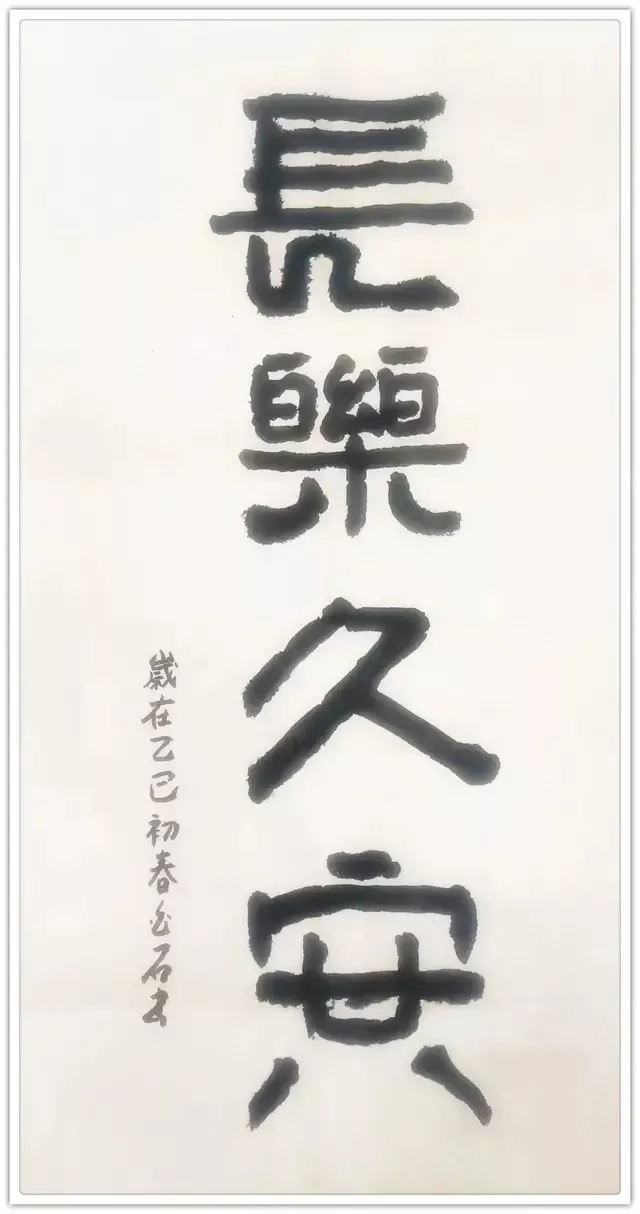 長樂久安
歲在乙巳初春金石书